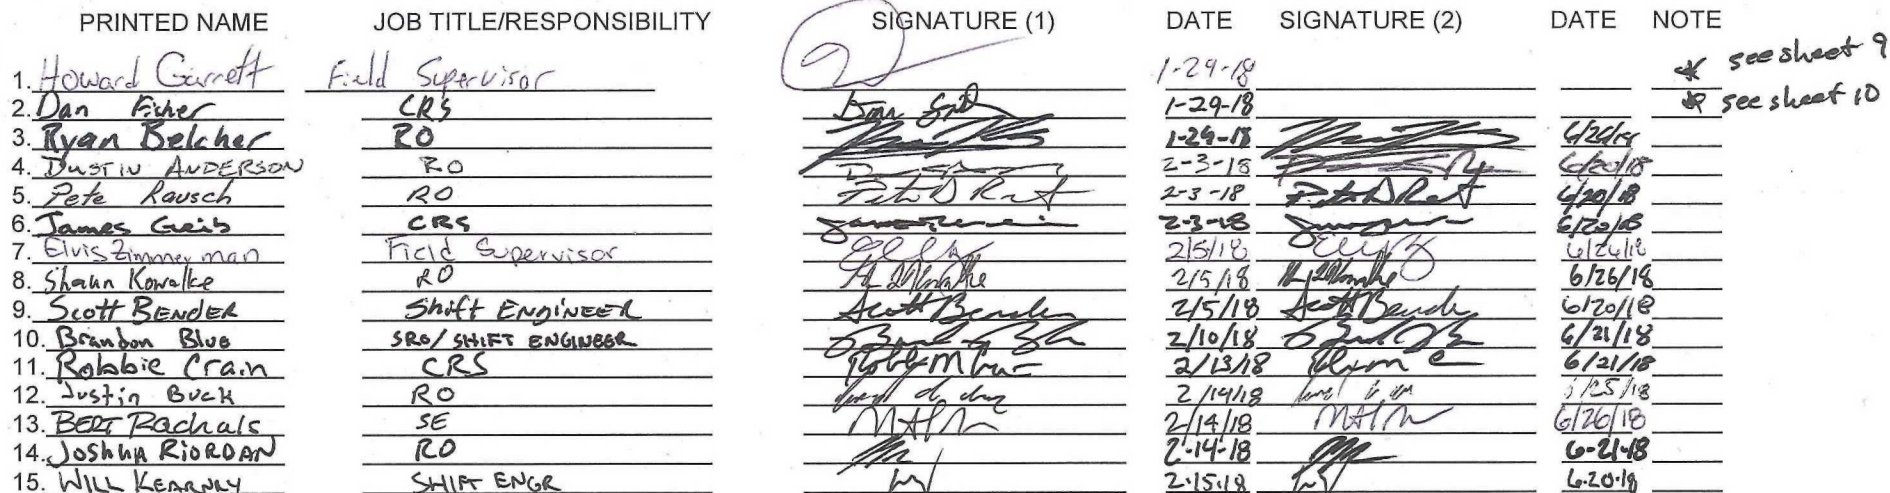 PRINTED NAME JOB TITLE/RESPONSIBILITY SIGNATURE (1) DATE SIGNATURE (2) DATE NOTE
1. Howard Garrett Field Supervisor 1-29-18 * see sheet 9
2. Dan Fisher CRS 1-29-18 * see sheet 10
3. Ryan Belcher RO 1-29-18
4. DUSTIN ANDERSON RO 2-3-18 6/20/18
5. Pete Rausch RO 2-3-18 6/20/18
6. James Geib CRS 2-3-18 6/20/18
7. Elvis Zimmerman Field Supervisor 2/5/18
8. Shaun Kowalke RO 2/5/18 6/26/18
9. Scott BENDER Shift ENGINEER Scott Bender 2/5/18 Scott Bender 6/20/18
10. Brandon Blue SRO/SHIFT ENGINEER 2/10/18 6/21/18
11. Robbie Crain CRS 2/13/18 6/21/18
12. Justin Buck RO 2/14/18
13. BERT Rachals SE 2/14/18 6/26/18
14. JOSHUA RIORDAN RO 2-14-18 6-21-18
15. WILL KEARNEY SHIFT ENGR 2-15-18 6-20-18